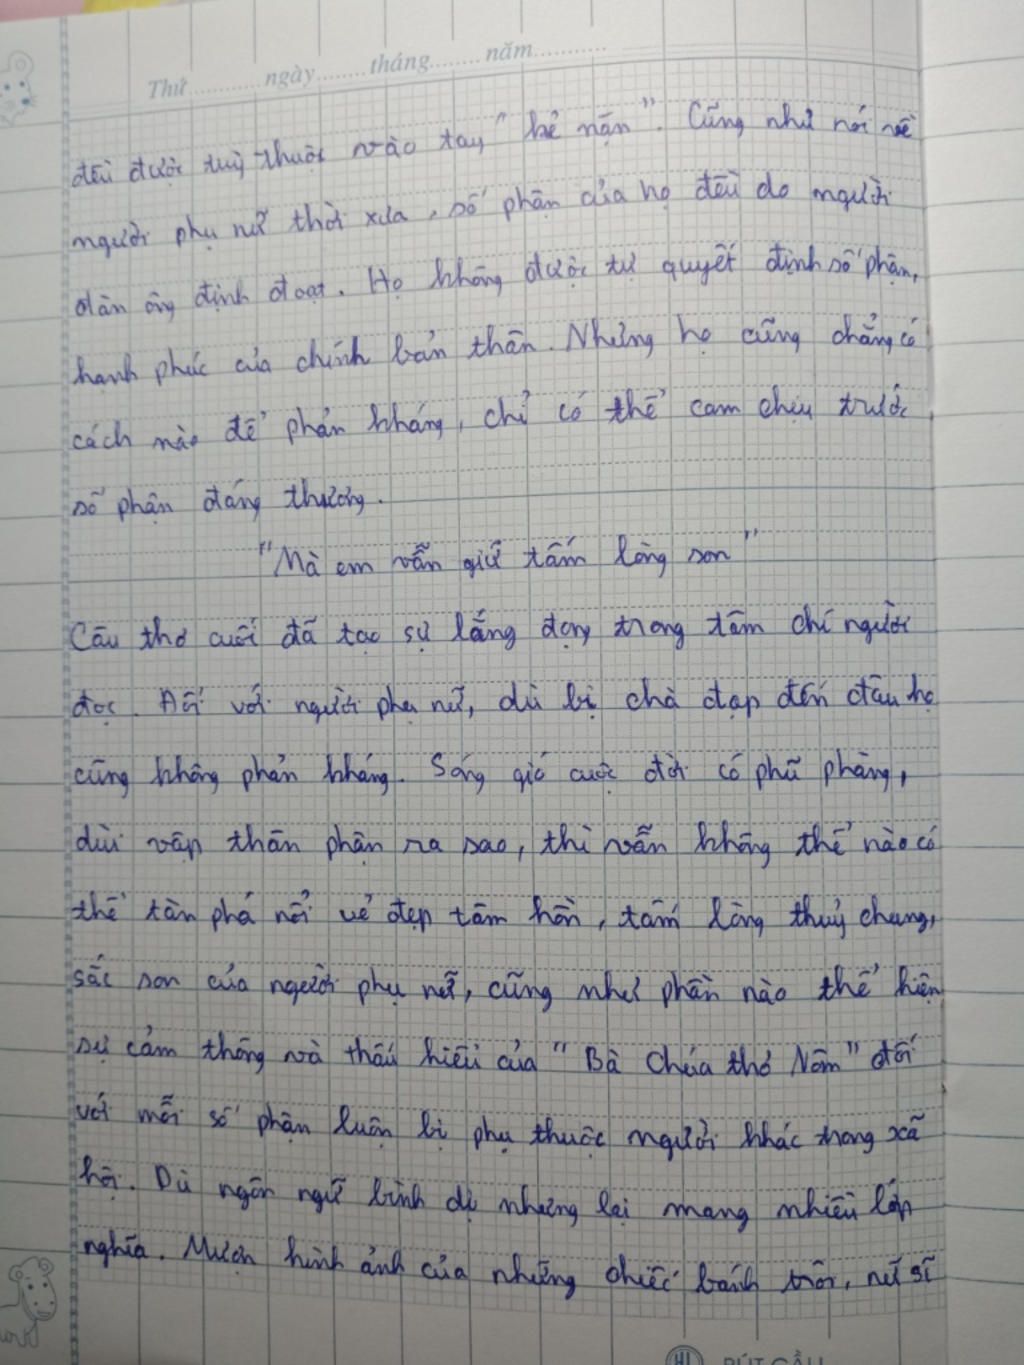 Thứ.............ngày........tháng........năm............
đều được tuỳ thuộc vào tay "kẻ nặn". Cũng như nói về
người phụ nữ thời xưa, số phận của họ đều do người
đàn ông định đoạt. Họ không được tự quyết định số phận,
hạnh phúc của chính bản thân. Nhưng họ cũng chẳng có
cách nào để phản kháng, chỉ có thể cam chịu trước
số phận đáng thương.
"Mà em vẫn giữ tấm lòng son"
Câu thơ cuối đã tạo sự lắng đọng trong tâm chí người
đọc. Đối với người phụ nữ, dù bị chà đạp đến đâu họ
cũng không phản kháng. Sóng gió cuộc đời có phũ phàng,
dùi vập thân phận ra sao, thì vẫn không thể nào có
thể tàn phá nổi vẻ đẹp tâm hồn, tấm lòng thuỷ chung,
sắc son của người phụ nữ, cũng như phần nào thể hiện
sự cảm thông và thấu hiểu của "Bà Chúa thơ Nôm" đối
với mỗi số phận luôn bị phụ thuộc người khác trong xã
hội. Dù ngôn ngữ bình dị nhưng lại mang nhiều lớp
nghĩa. Mượn hình ảnh của những chiếc bánh trôi, nữ sĩ
BÚT CẦU